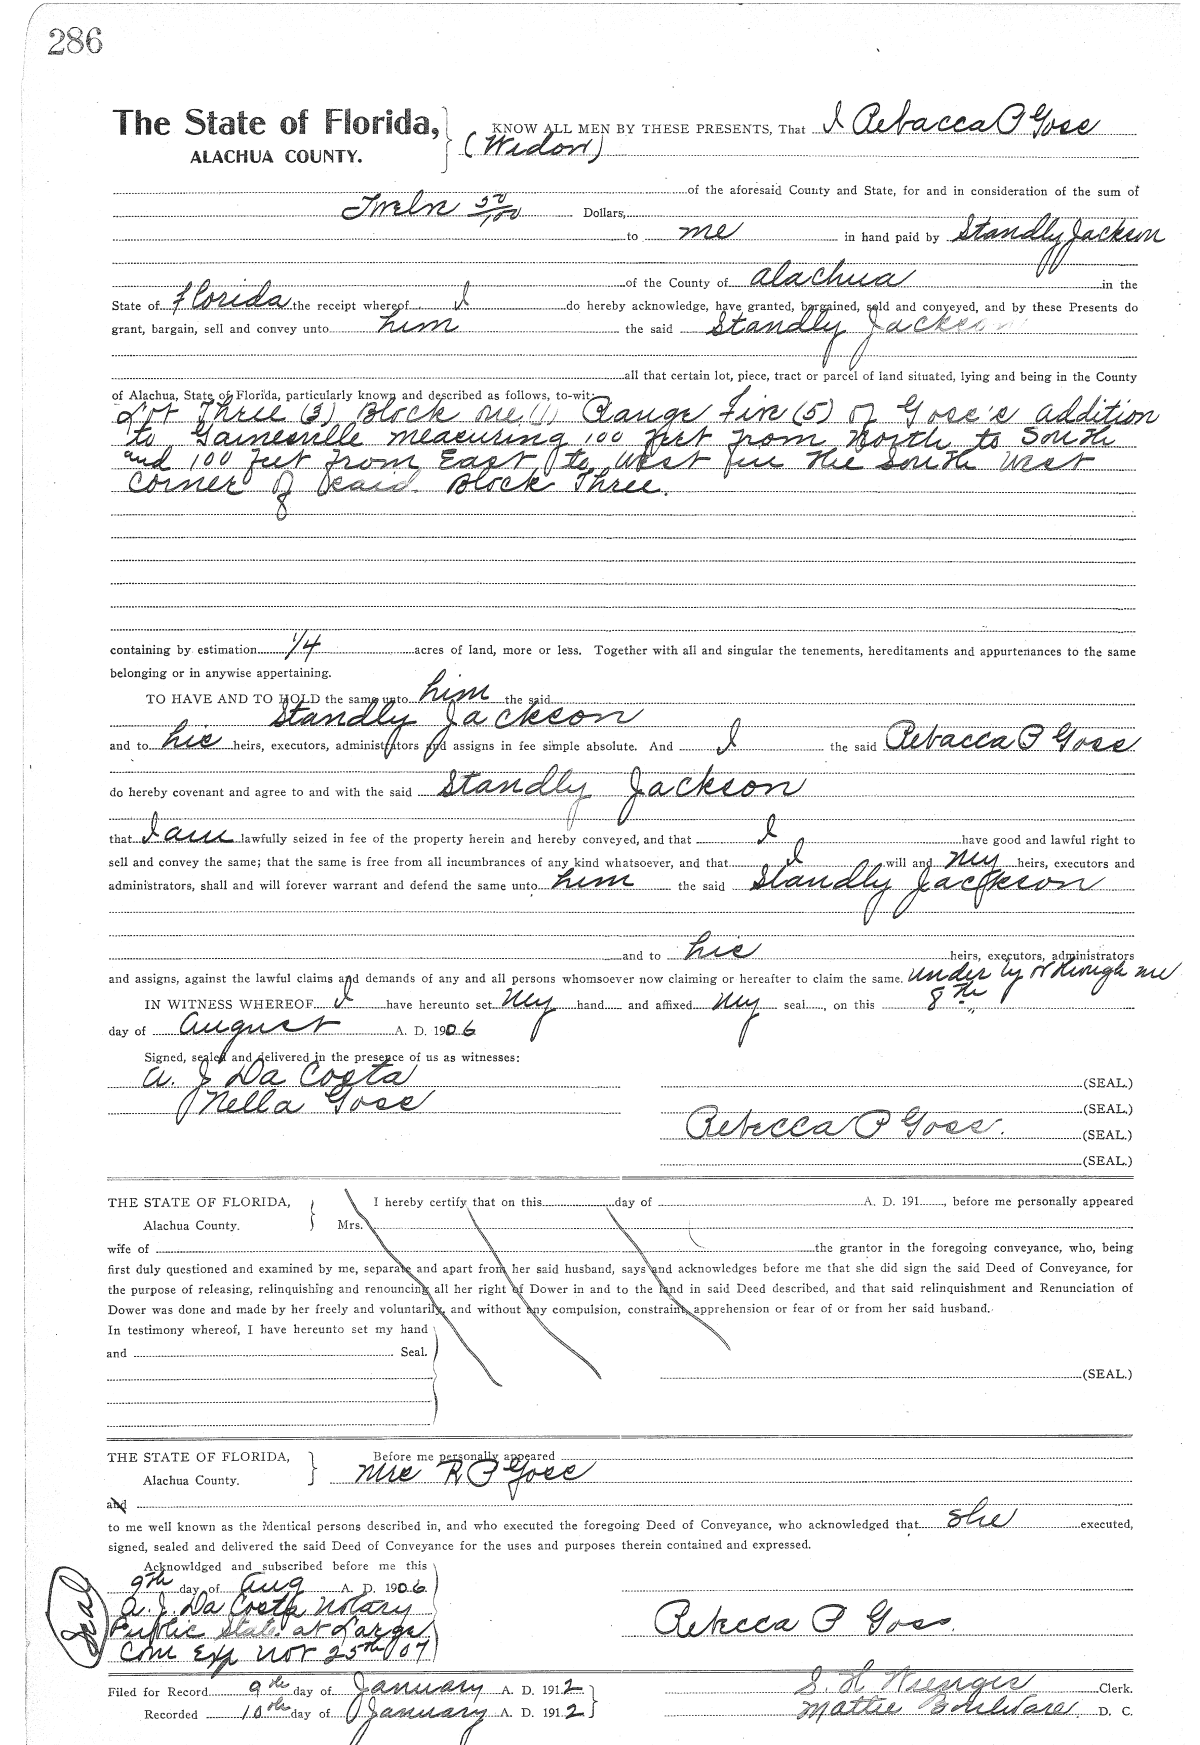 286
The State of Florida,
ALACHUA COUNTY.
KNOW ALL MEN BY THESE PRESENTS, That I Rebacca P Goss
(Widow)
of the aforesaid County and State, for and in consideration of the sum of
Twelve 50/100 Dollars,
to me in hand paid by Standly Jackson
of the County of Alachua in the
State of Florida the receipt whereof I do hereby acknowledge, have granted, bargained, sold and conveyed, and by these Presents do
grant, bargain, sell and convey unto him the said Standly Jackson
all that certain lot, piece, tract or parcel of land situated, lying and being in the County
of Alachua, State of Florida, particularly known and described as follows, to-wit:
Lot Three (3) Block one (1) Range Five (5) of Goss's addition
to Gainesville measuring 100 feet from North to South
and 100 feet from East to West in the South West
corner of said Block Three.
containing by estimation 1/4 acres of land, more or less. Together with all and singular the tenements, hereditaments and appurtenances to the same
belonging or in anywise appertaining.
TO HAVE AND TO HOLD the same unto him the said
Standly Jackson
and to his heirs, executors, administrators and assigns in fee simple absolute. And I the said Rebacca P Goss
do hereby covenant and agree to and with the said Standly Jackson
that I am lawfully seized in fee of the property herein and hereby conveyed, and that I have good and lawful right to
sell and convey the same; that the same is free from all incumbrances of any kind whatsoever, and that I will and my heirs, executors and
administrators, shall and will forever warrant and defend the same unto him the said Standly Jackson
and to his heirs, executors, administrators
and assigns, against the lawful claims and demands of any and all persons whomsoever now claiming or hereafter to claim the same. under by or through me
IN WITNESS WHEREOF I have hereunto set my hand and affixed my seal, on this 8th
day of August A. D. 1906
Signed, sealed and delivered in the presence of us as witnesses:
A. J Da Costa (SEAL.)
Nella Goss (SEAL.)
Rebecca P Goss. (SEAL.)
(SEAL.)
THE STATE OF FLORIDA,
Alachua County.
I hereby certify that on this day of A. D. 191 , before me personally appeared
Mrs.
wife of the grantor in the foregoing conveyance, who, being
first duly questioned and examined by me, separate and apart from her said husband, says and acknowledges before me that she did sign the said Deed of Conveyance, for
the purpose of releasing, relinquishing and renouncing all her right of Dower in and to the land in said Deed described, and that said relinquishment and Renunciation of
Dower was done and made by her freely and voluntarily, and without any compulsion, constraint, apprehension or fear of or from her said husband.
In testimony whereof, I have hereunto set my hand
and Seal.
(SEAL.)
THE STATE OF FLORIDA,
Alachua County.
Before me personally appeared
Mrs R P Goss
and
to me well known as the identical persons described in, and who executed the foregoing Deed of Conveyance, who acknowledged that she executed,
signed, sealed and delivered the said Deed of Conveyance for the uses and purposes therein contained and expressed.
Acknowldged and subscribed before me this
9th day of Aug A. D. 1906
A. J. Da Costa Notary
Public State at Large
Com Exp Nov 25th 07
Seal
Rebecca P Goss.
Filed for Record 9th day of January A. D. 1912
Recorded 10th day of January A. D. 1912
S. H Wienges Clerk.
Mattie Boulware. D. C.